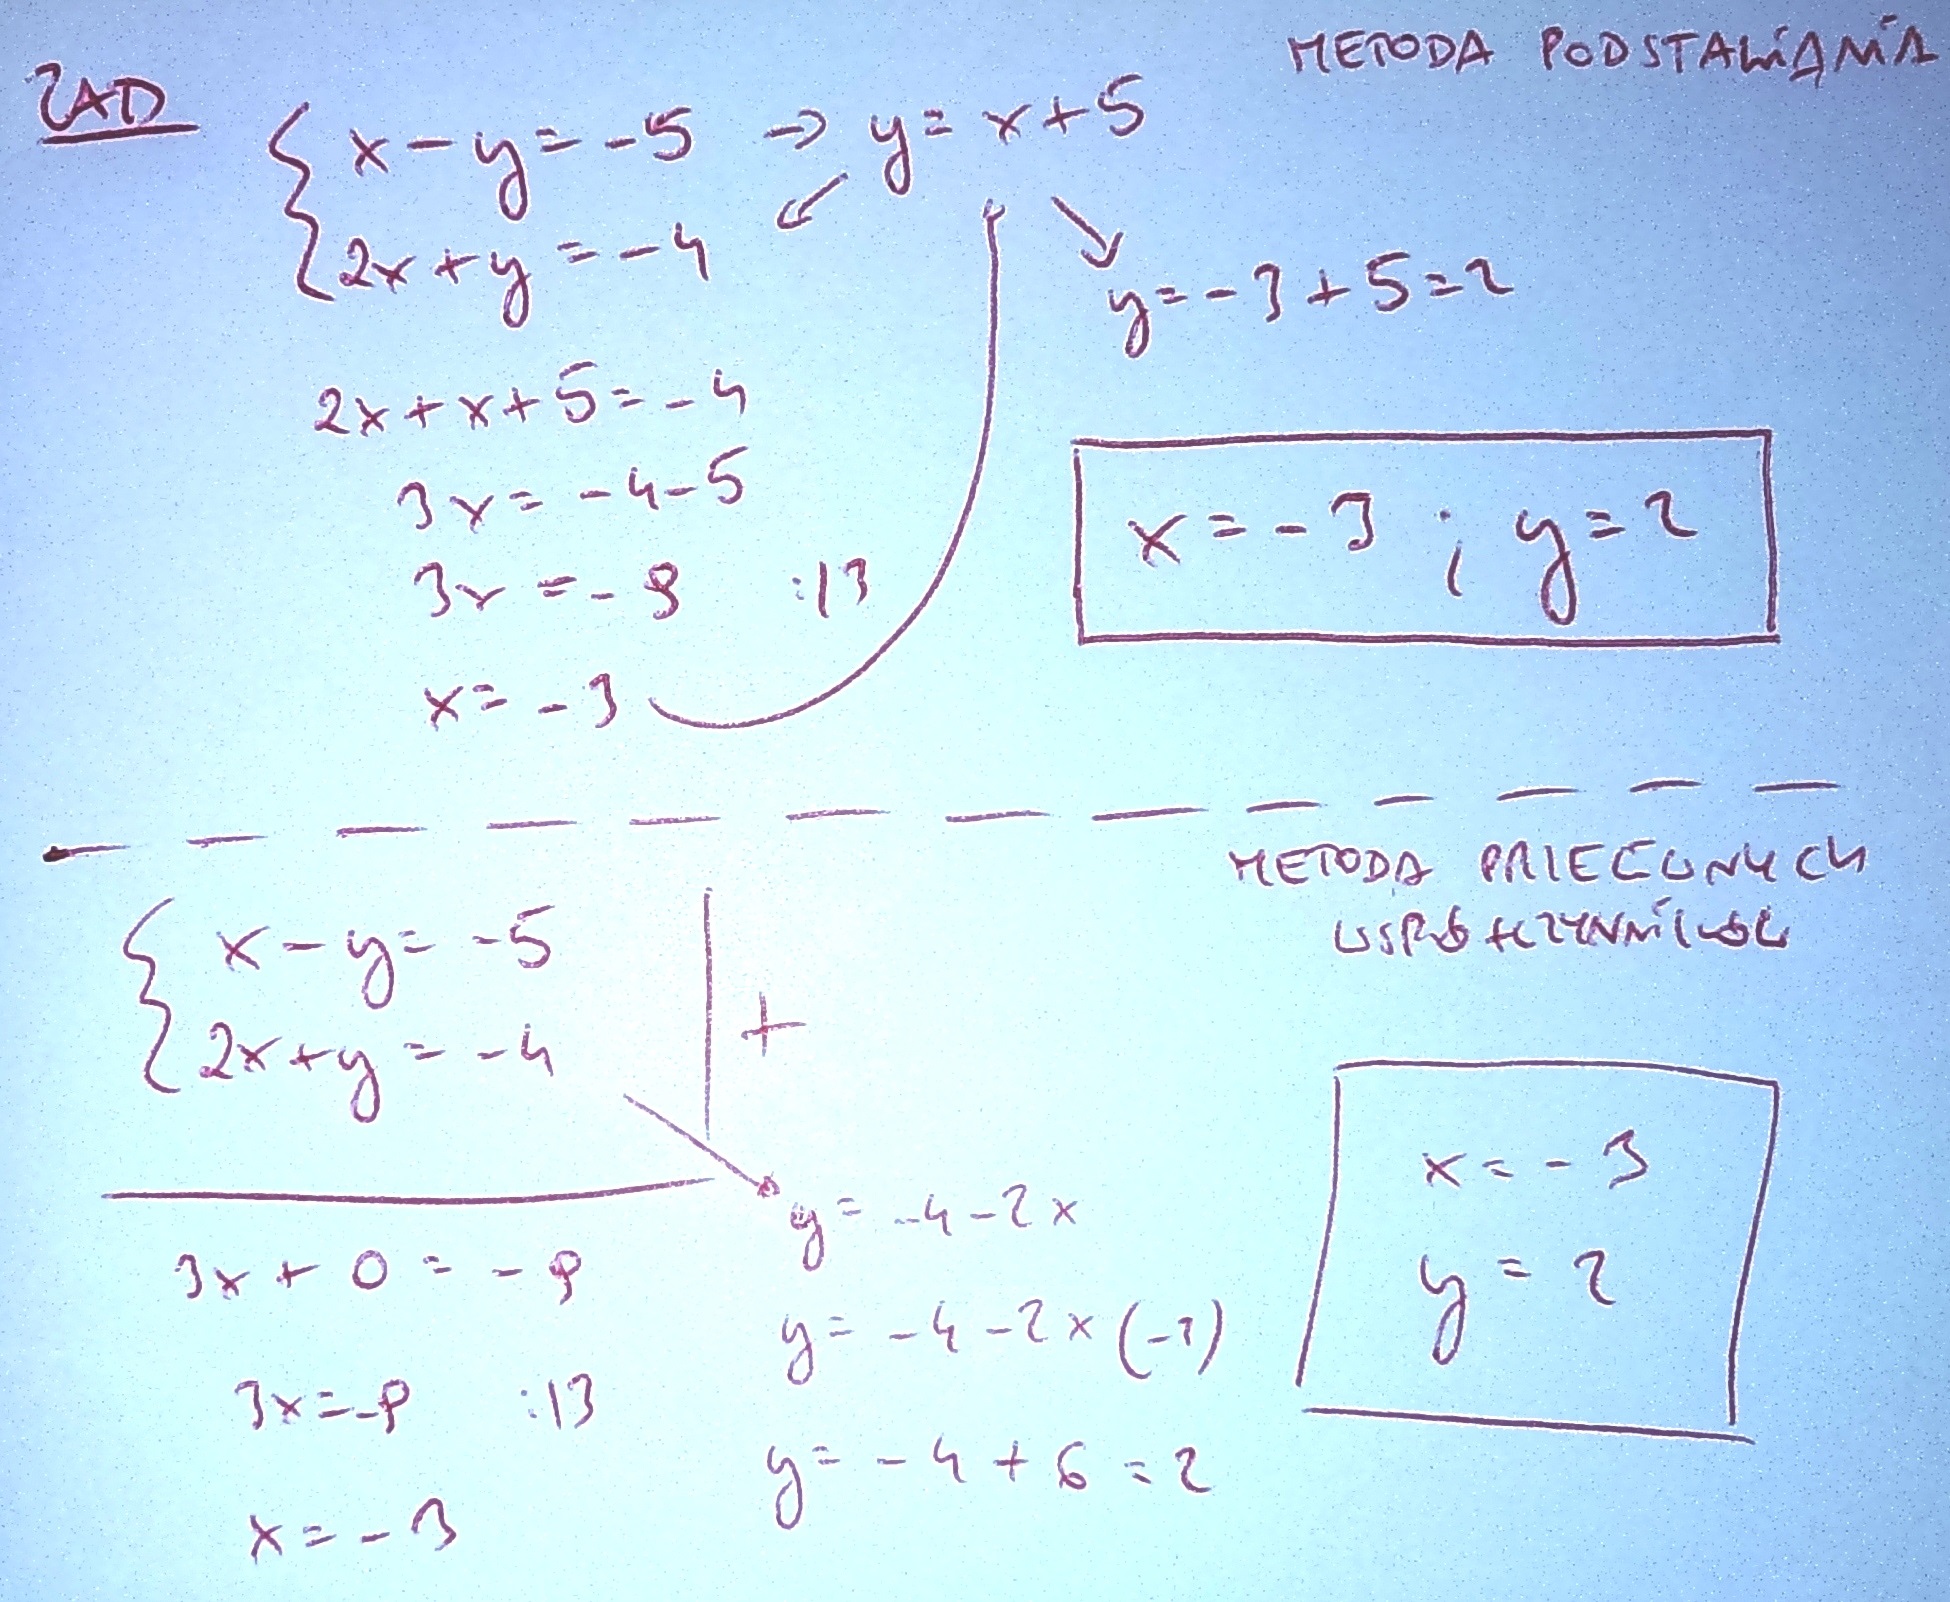 METODA PODSTAWIANIA
ZAD
{ x - y = -5 → y = x + 5
{ 2x + y = -4
y = -3 + 5 = 2
2x + x + 5 = -4
3x = -4 - 5
3x = -9 :|3
x = -3
x = -3 ; y = 2
METODA PRZECIWNYCH
WSPÓŁCZYNNIKÓW
{ x - y = -5
{ 2x + y = -4 | +
3x + 0 = -9
3x = -9 :|3
x = -3
y = -4 - 2x
y = -4 - 2 x (-3)
y = -4 + 6 = 2
x = -3
y = 2